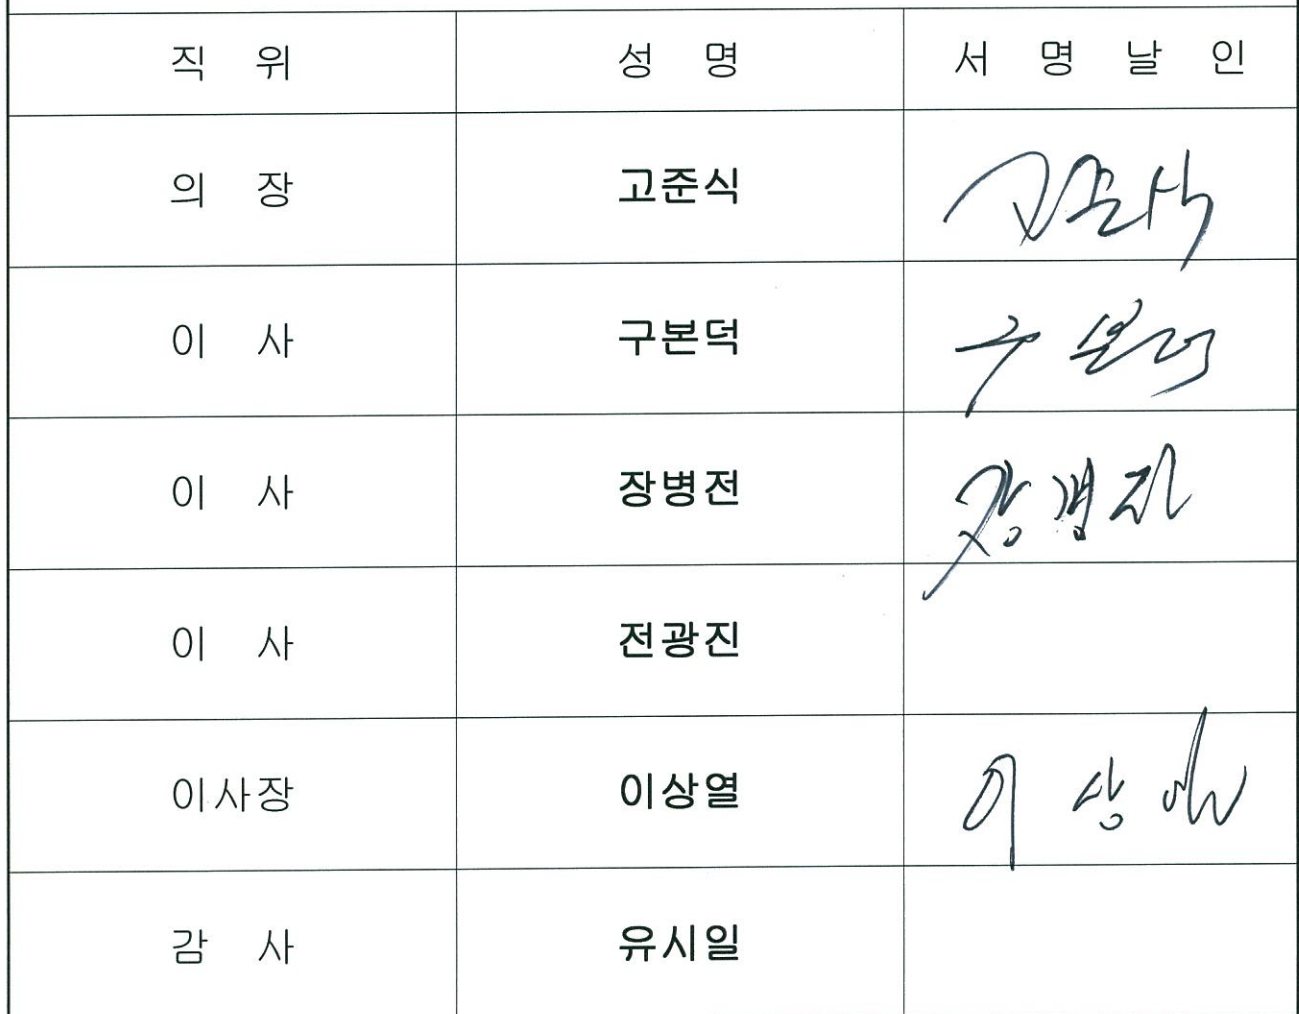 직 위 성 명 서 명 날 인
의 장 고준식 고준식
이 사 구본덕 구본덕
이 사 장병전 장병전
이 사 전광진
이사장 이상열 이상열
감 사 유시일